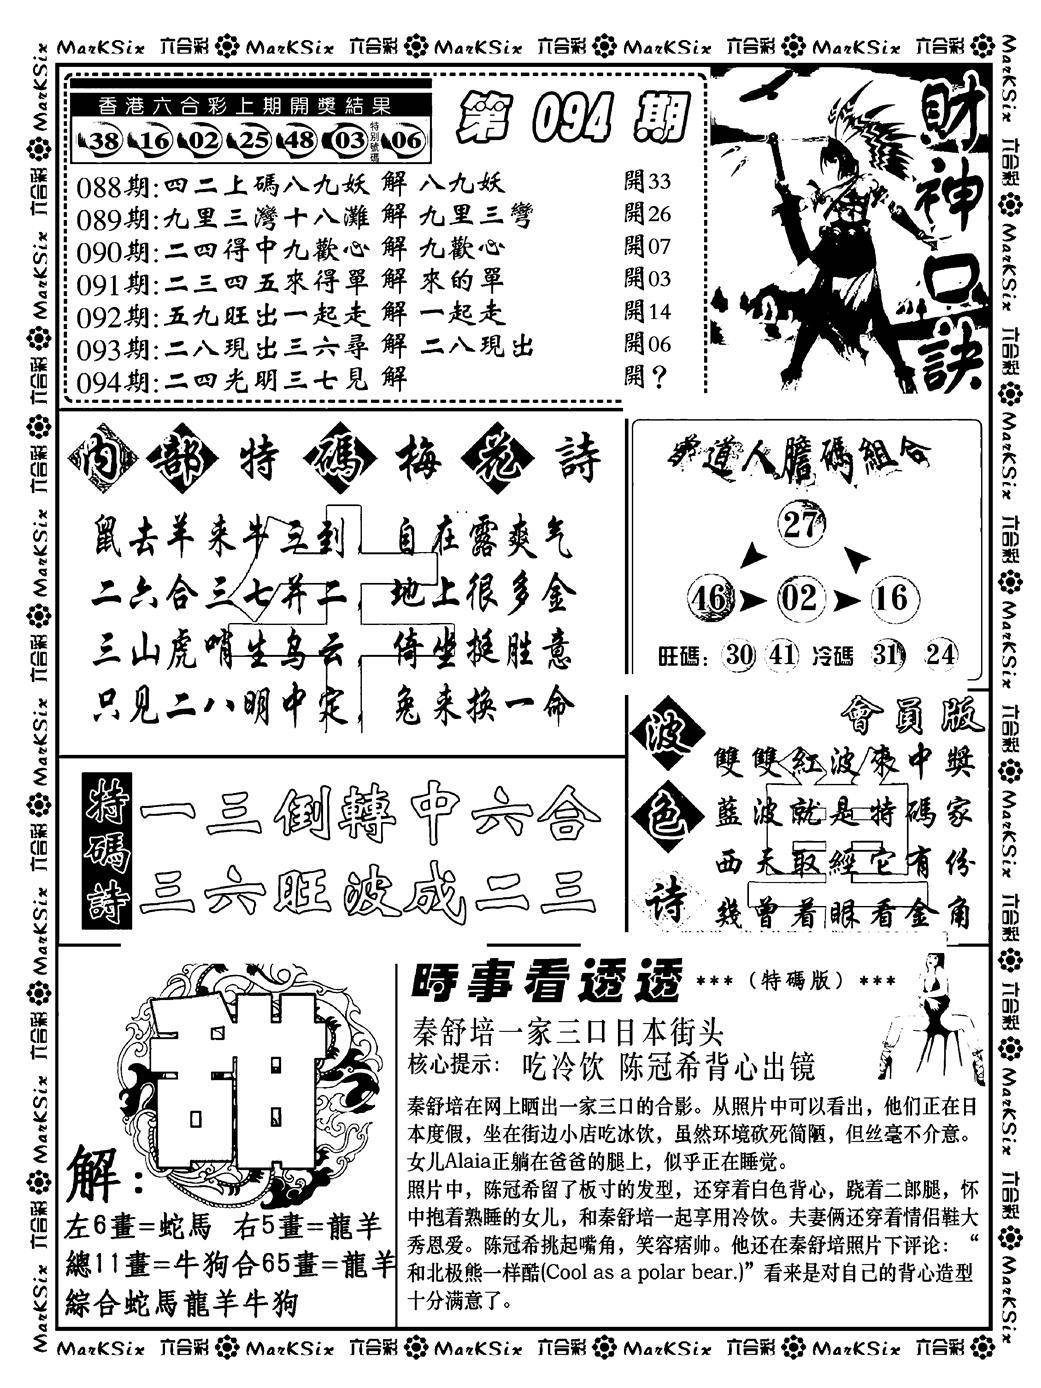 MarKSix 六合彩 MarKSix 六合彩 MarKSix 六合彩 MarKSix 六合彩 MarKSix 六合彩
香港六合彩上期開獎結果
38 16 02 25 48 03 特別號碼 06
第 094 期
088期:四二上碼八九妖 解 八九妖 開33
089期:九里三灣十八灘 解 九里三彎 開26
090期:二四得中九歡心 解 九歡心 開07
091期:二三四五來得單 解 來的單 開03
092期:五九旺出一起走 解 一起走 開14
093期:二八現出三六尋 解 二八現出 開06
094期:二四光明三七見 解 開？
財神口訣
內部特碼梅花詩
鼠去羊来牛五到，自在露爽气
二六合三七并二，地上很多金
三山虎哨生乌云，倚坐挺胜意
只见二八明中定，兔来换一命
道人膽碼組合
27
46 02 16
旺碼：30 41 冷碼 31 24
特碼詩
一三倒轉中六合
三六旺波成二三
波色诗
會員版
雙雙紅波來中獎
藍波就是特碼家
西天取經它有份
幾曾着眼看金角
解：
左6畫=蛇馬 右5畫=龍羊
總11畫=牛狗合65畫=龍羊
綜合蛇馬龍羊牛狗
時事看透透 ***（特碼版）***
秦舒培一家三口日本街头
核心提示： 吃冷饮 陈冠希背心出镜
秦舒培在网上晒出一家三口的合影。从照片中可以看出，他们正在日
本度假，坐在街边小店吃冰饮，虽然环境砍死简陋，但丝毫不介意。
女儿Alaia正躺在爸爸的腿上，似乎正在睡觉。
照片中，陈冠希留了板寸的发型，还穿着白色背心，跷着二郎腿，怀
中抱着熟睡的女儿，和秦舒培一起享用冷饮。夫妻俩还穿着情侣鞋大
秀恩爱。陈冠希挑起嘴角，笑容痞帅。他还在秦舒培照片下评论：“
和北极熊一样酷(Cool as a polar bear.)”看来是对自己的背心造型
十分满意了。
MarKSix 六合彩 MarKSix 六合彩 MarKSix 六合彩 MarKSix 六合彩 MarKSix 六合彩